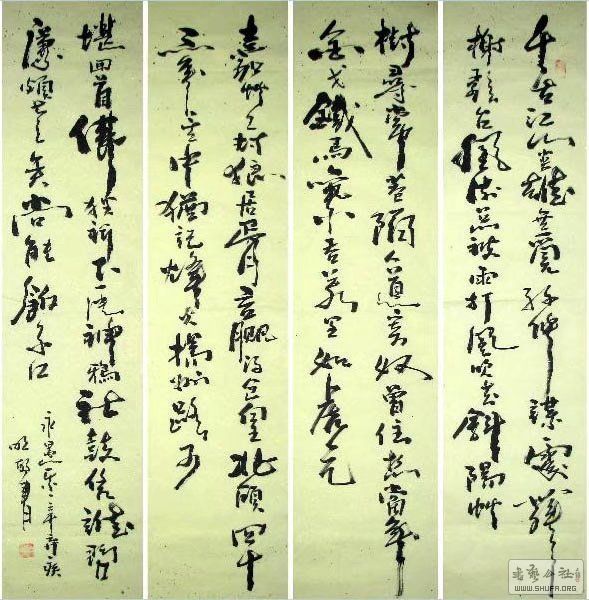 千古江山英雄無覓孫仲謀處舞
榭歌台風流總被雨打風吹去斜陽艸
樹尋常巷陌人道寄奴曾住想當年
金戈鐵馬氣吞萬里如虎元
嘉艸艸封狼居胥意贏得倉皇北顧四十
三年望中猶記烽火揚州路可
堪回首佛狸祠下一片神鴉社鼓憑誰問
廉頗老矣尚能飯否
永遇樂辛棄疾
书艺公社
WWW.SHUFA.ORG